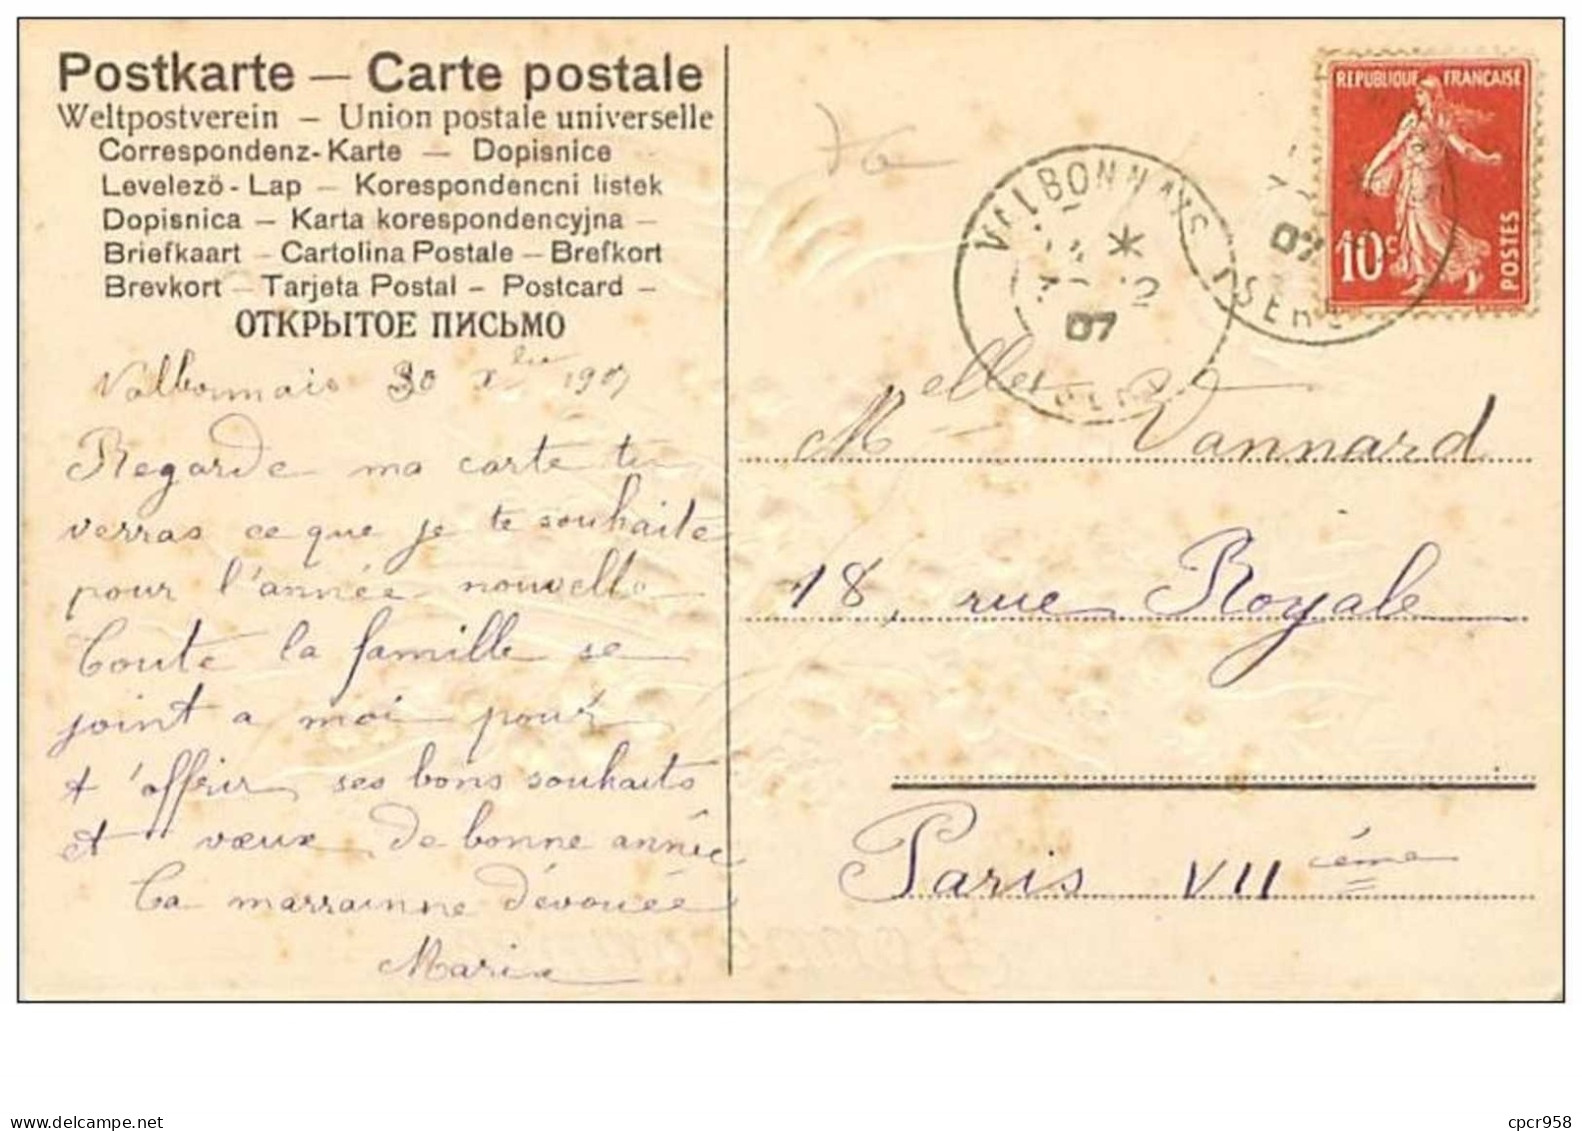 Postkarte — Carte postale
Weltpostverein — Union postale universelle
Correspondenz-Karte — Dopisnice
Levelezö-Lap — Korespondencni listek
Dopisnica — Karta korespondencyjna —
Briefkaart — Cartolina Postale — Brefkort
Brevkort — Tarjeta Postal — Postcard —
ОТКРЫТОЕ ПИСЬМО
Valbonnais 30 Xbre 1907
Regarde ma carte tu
verras ce que je te souhaite
pour l'année nouvelle
Toute la famille se
joint a moi pour
t'offrir ses bons souhaits
et vœux de bonne année
Ta marrainne dévouée
Marie
REPUBLIQUE FRANÇAISE
10c
POSTES
VALBONNAYS
07
ISERE
07
Melle Vannard
18, rue Royale
Paris VIIème
cpcr958